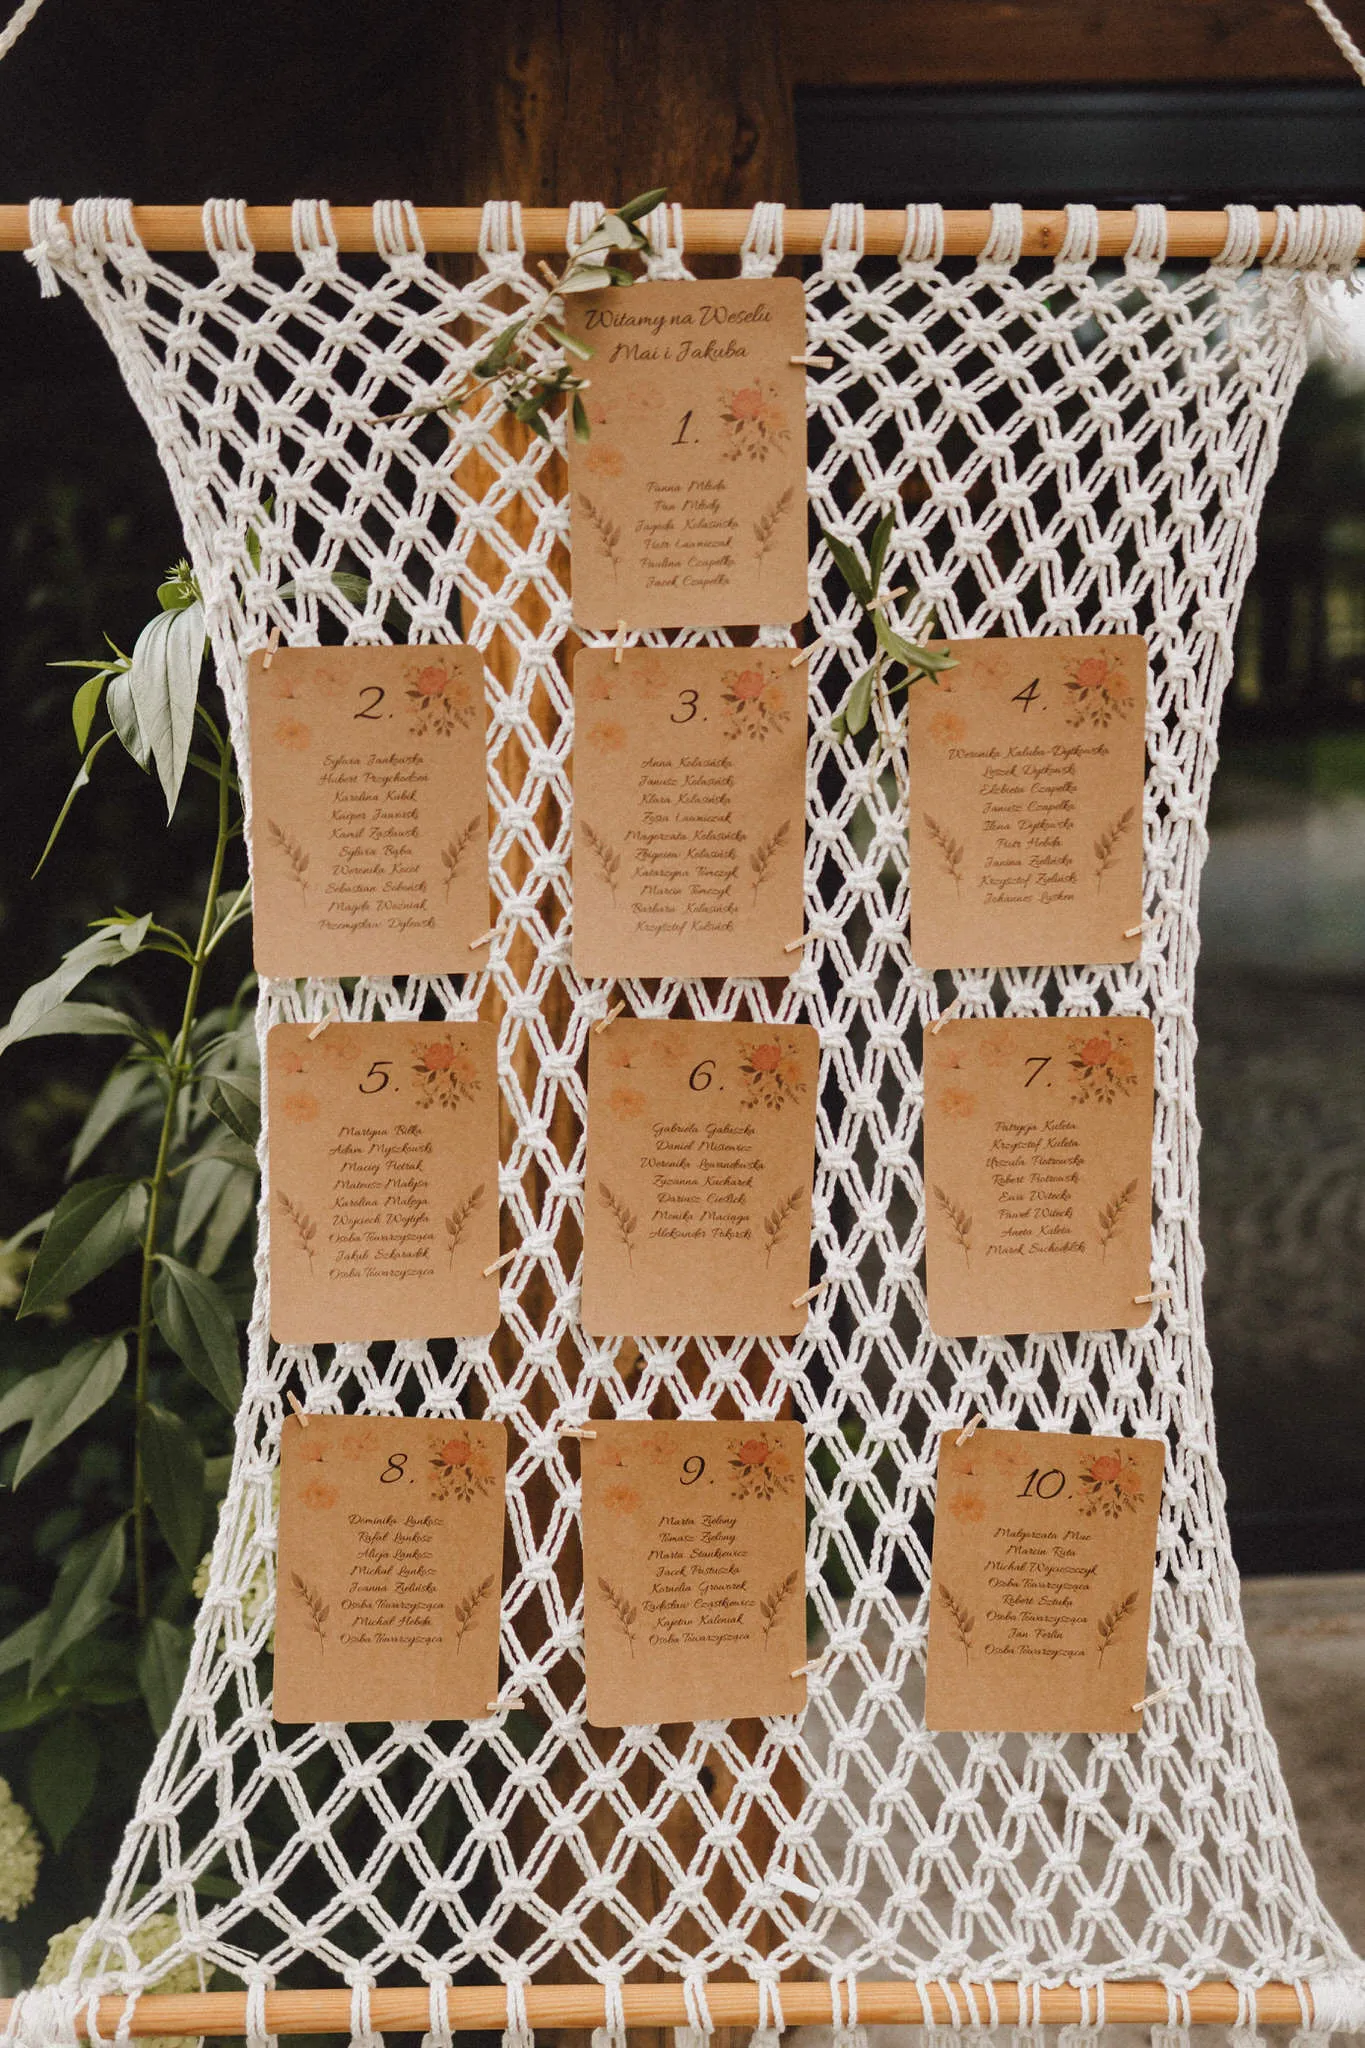 Witamy na Weselu
Mai i Jakuba
1.
Panna Młoda
Pan Młody
Jagoda Kolasińska
Piotr Ławniczak
Paulina Czapelka
Jacek Czapelka
2.
Sylwia Jankowska
Hubert Przychodzeń
Karolina Kubik
Kacper Jaworski
Kamil Zasławski
Sylwia Bąba
Weronika Kocot
Sebastian Soboński
Magda Woźniak
Przemysław Dylewski
3.
Anna Kolasińska
Janusz Kolasiński
Klara Kolasińska
Zosia Ławniczak
Małgorzata Kolasińska
Zbigniew Kolasiński
Katarzyna Tomczyk
Marcin Tomczyk
Barbara Kolasińska
Krzysztof Kolsiński
4.
Weronika Kałuba-Dytkowska
Leszek Dytkowski
Elżbieta Czapelka
Janusz Czapelka
Ilona Dytkowska
Piotr Hebda
Janina Zielińska
Krzysztof Zieliński
Johannes
5.
Martyna Bilka
Adam Myszkowski
Maciej Pietrak
Mateusz Małysa
Karolina Malaga
Wojciech Wojtyła
Osoba Towarzysząca
Jakub Szkaradek
Osoba Towarzysząca
6.
Gabriela Gałuszka
Daniel Misiewicz
Weronika Lewandowska
Zuzanna Kucharek
Dariusz Cieślicki
Monika Maciąga
Aleksander Pokurski
7.
Patrycja Kuleta
Krzysztof Kuleta
Urszula Piotrowska
Robert Piotrowski
Ewa Witecka
Paweł Witecki
Aneta Kuleta
Marek Suchodolski
8.
Dominika Lankosz
Rafał Lankosz
Alicja Lankosz
Michał Lankosz
Joanna Zielińska
Osoba Towarzysząca
Michał Hebda
Osoba Towarzysząca
9.
Marta Zielony
Tomasz Zielony
Marta Stankiewicz
Jacek Pastuszka
Kornelia Graworek
Radosław Cząstkiewicz
Kajetan Kaleniak
Osoba Towarzysząca
10.
Małgorzata Mac
Marcin Ruta
Michał Wojcieszczyk
Osoba Towarzysząca
Robert Sztuka
Osoba Towarzysząca
Jan Ferlin
Osoba Towarzysząca